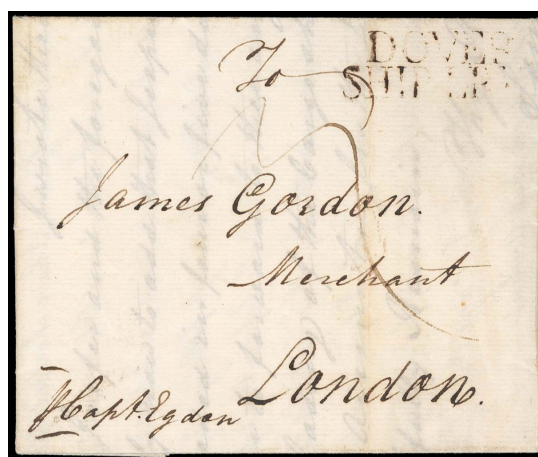 To
DOVER
SHIP LRE
James Gordon.
Merchant
London.
Capt. Egdon